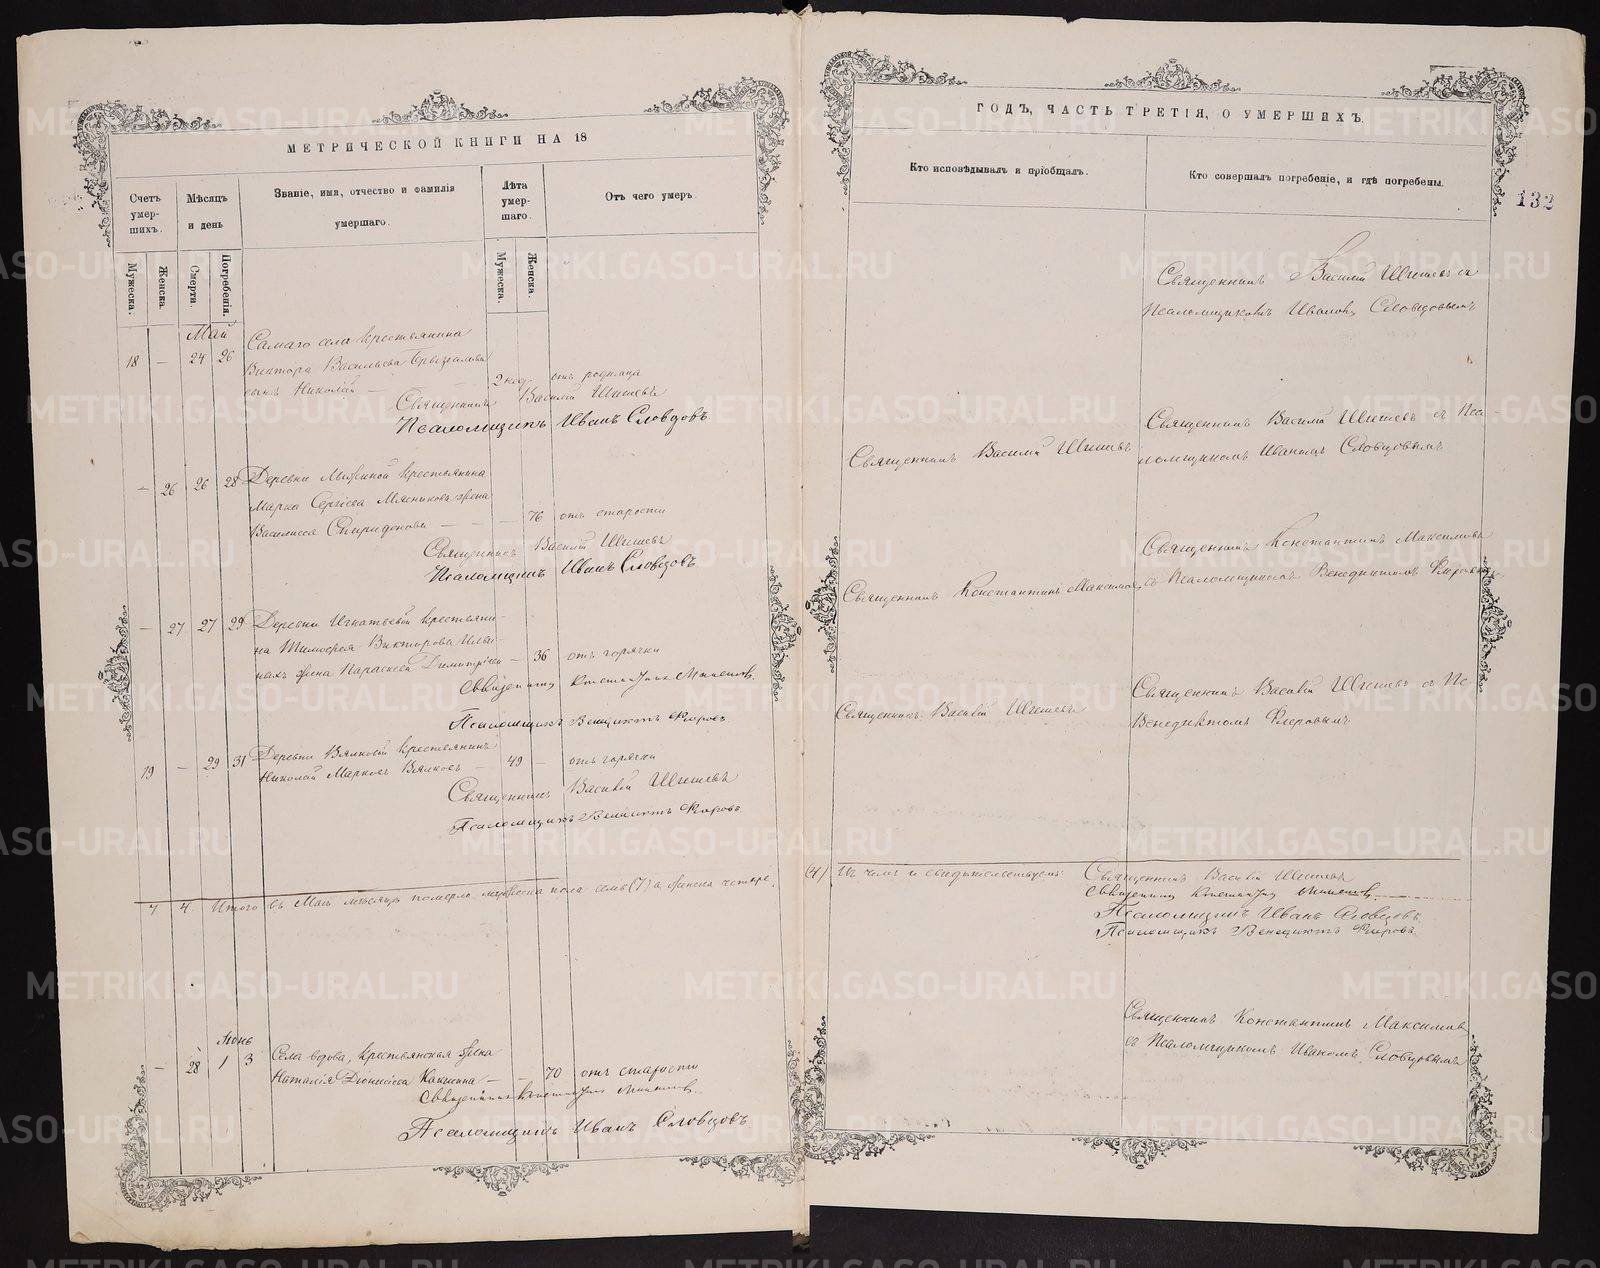 МЕТРИЧЕСКОЙ КНИГИ НА 18
Счетъ умершихъ.
Мѣсяцъ и день
Званіе, имя, отчество и фамилія умершаго.
Лѣта умершаго.
Отъ чего умеръ
Мужеска.
Женска.
Смерти.
Погребенія.
Мужеска.
Женска.
Май
Самаго села крестьянина
18 — 24 26 Виктора Васильева
сынъ Николай — 2 нед. отъ родимца
Священникъ Василій Шишевъ
Псаломщикъ Иванъ Словцовъ
Деревни крестьянина
— 26 26 28 Марка Сергіева Мясникова жена
Василисса Спиридонова — — 76 отъ старости
Священникъ Василій Шишевъ
Псаломщикъ Иванъ Словцовъ
— 27 27 29 Деревни Игнатьевой крестьяни-
на Тимофея Викторова
жена Параскева Димитріева — 36 отъ горячки
Священникъ Константинъ
Псаломщикъ Венедиктъ Флоровъ
19 — 29 31 Деревни Вялковой крестьянинъ
Николай Марковъ Вялковъ — 49 — отъ горячки
Священникъ Василій Шишевъ
Псаломщикъ Венедиктъ Флоровъ
7 4 Итого въ Маѣ мѣсяцѣ померло мужеска пола семь (7) а женска четыре
Іюнь
— 28 1 3 Села вдова, крестьянская жена
Наталія Діонисіева — — 70 отъ старости
Священникъ Константинъ
Псаломщикъ Иванъ Словцовъ
ГОДЪ, ЧАСТЬ ТРЕТІЯ, О УМЕРШИХЪ.
Кто исповѣдывалъ и пріобщалъ.
Кто совершалъ погребеніе, и гдѣ погребены.
132
Священникъ Василій Шишевъ съ
Псаломщикомъ Иваномъ Словцовымъ
Священникъ Василій Шишевъ съ Пса-
Священникъ Василій Шишевъ
ломщикомъ Иваномъ Словцовымъ
Священникъ Константинъ Максимовъ
Священникъ Константинъ Максимовъ
съ Псаломщикомъ Венедиктомъ Флоровымъ
Священникъ Василій Шишевъ съ Пс.
Священникъ Василій Шишевъ
Венедиктомъ Флоровымъ
(4) Въ чемъ и свидѣтельствуемъ: Священникъ Василій Шишевъ
Священникъ Константинъ
Псаломщикъ Иванъ Словцовъ
Псаломщикъ Венедиктъ Флоровъ
Священникъ Константинъ Максимовъ
съ Псаломщикомъ Иваномъ Словцовымъ
METRIKI.GASO-URAL.RU